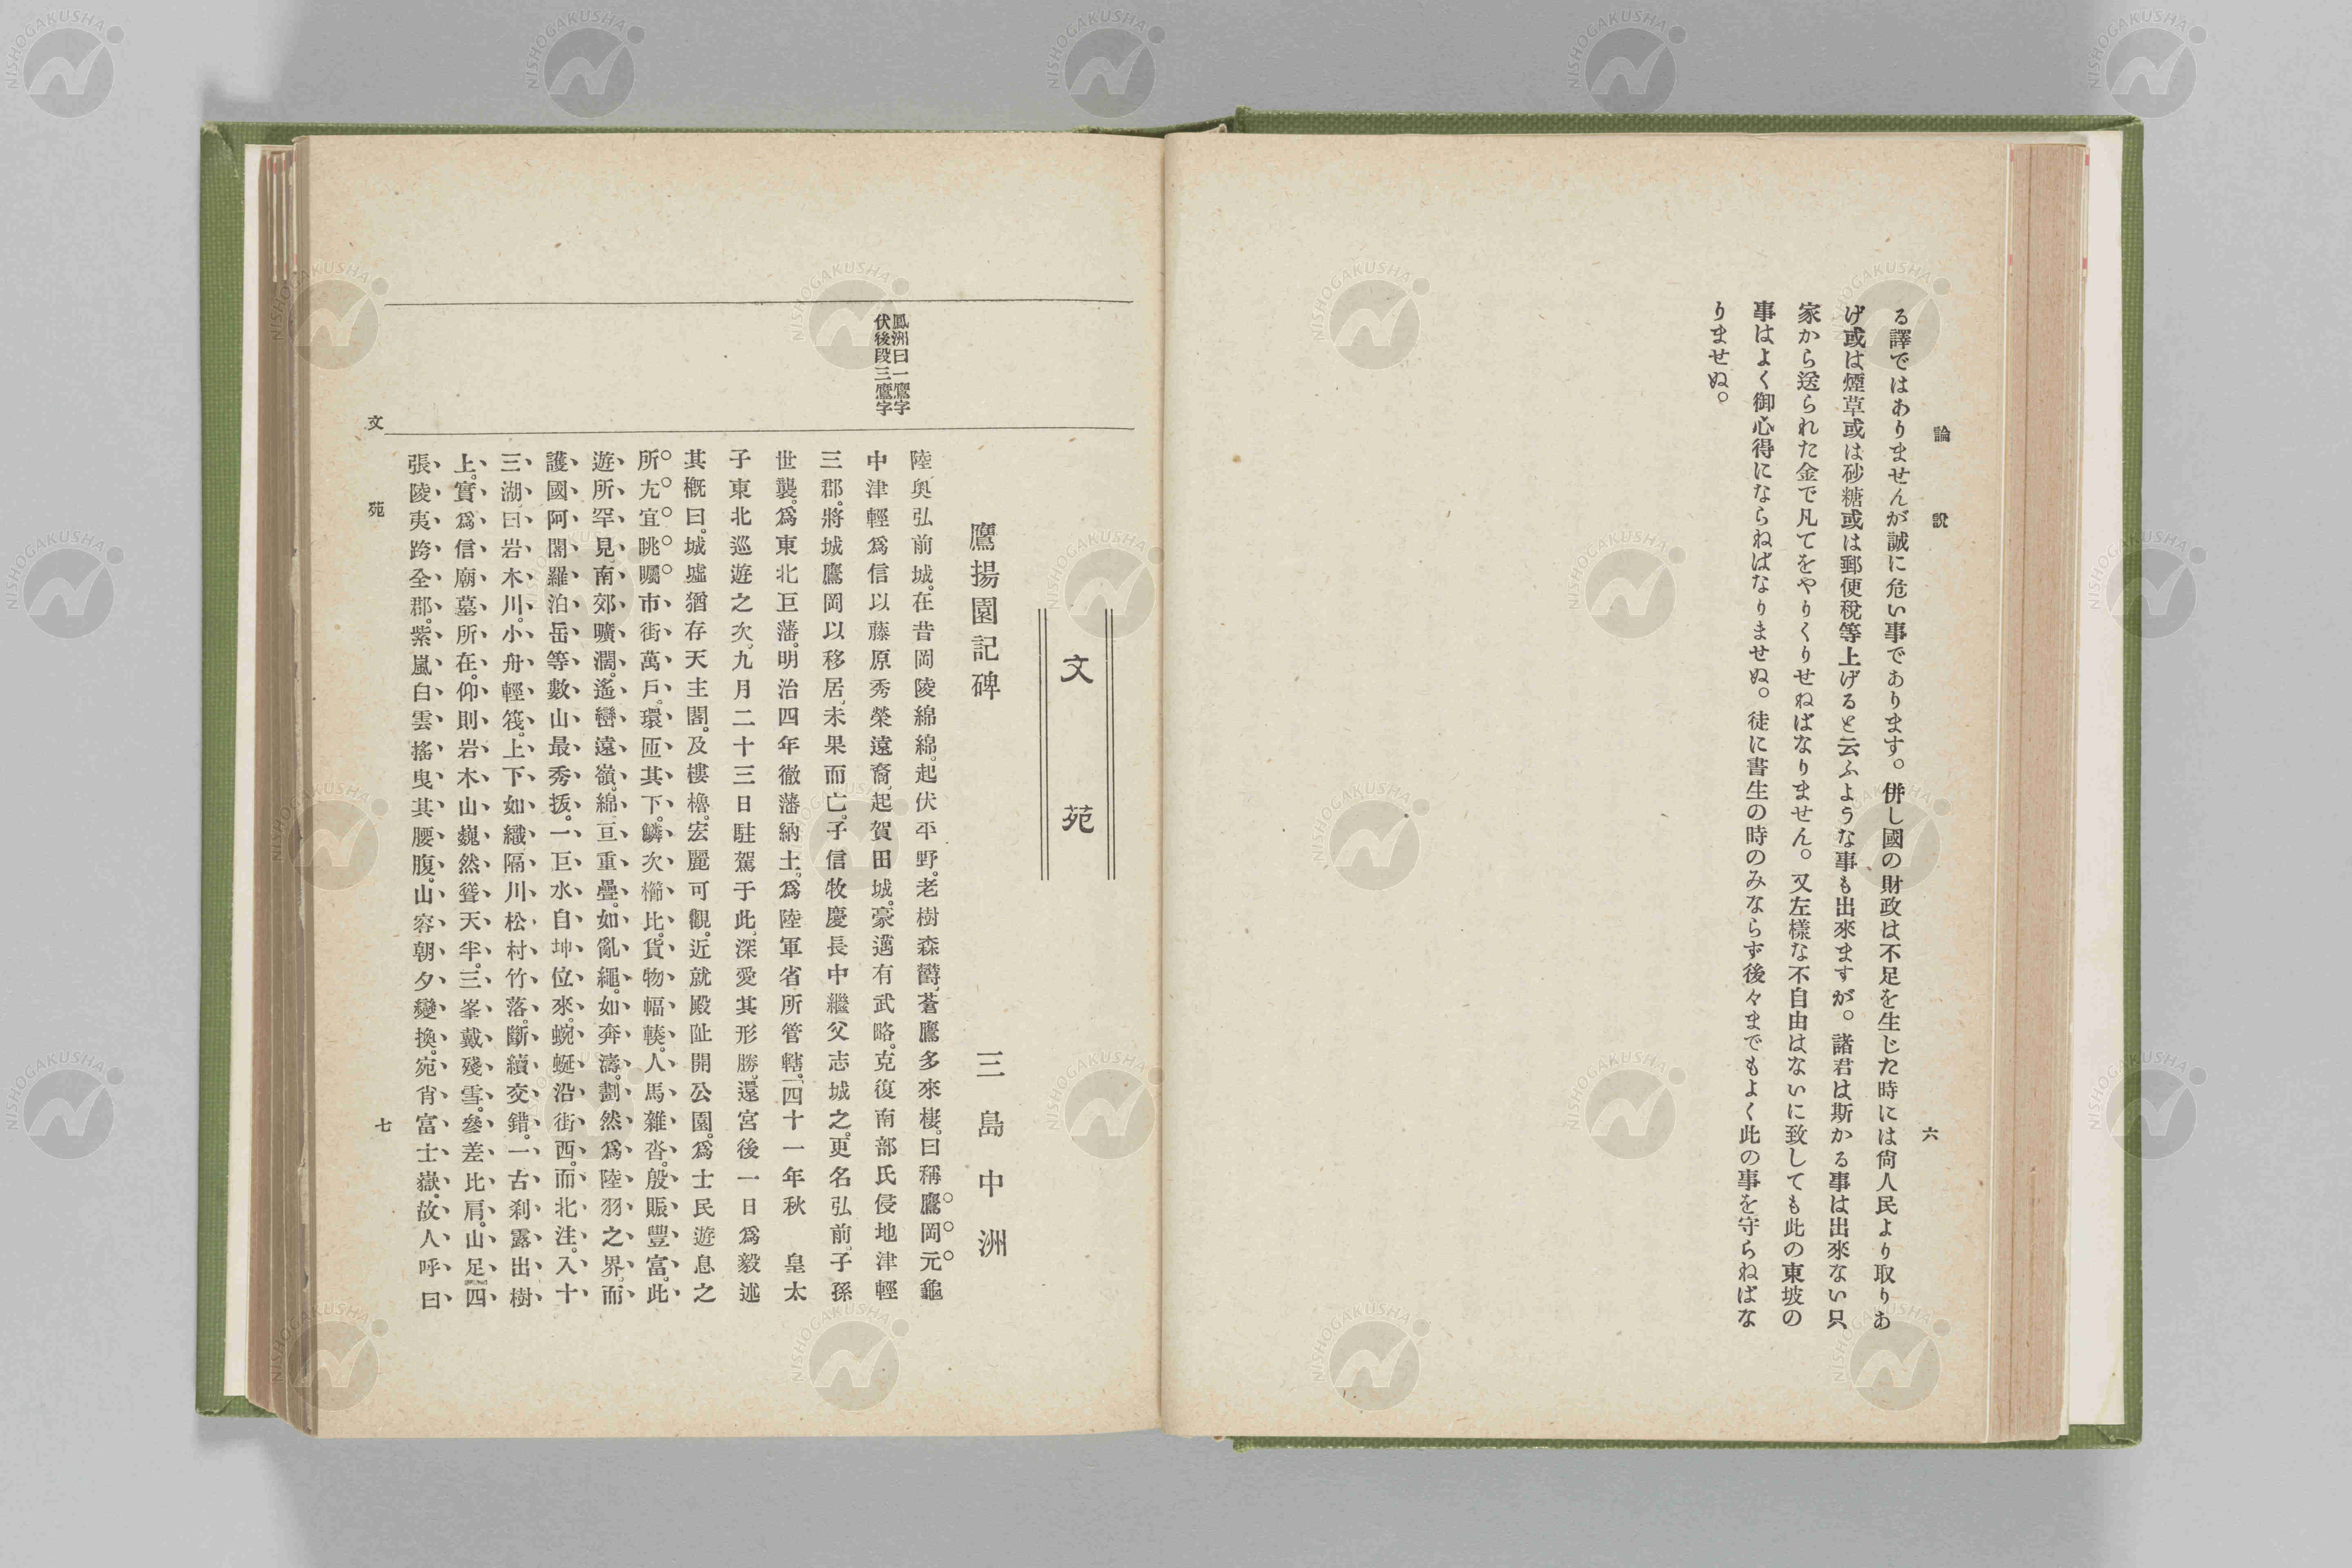 論說
六
る譯ではありませんが誠に危い事であります。併し國の財政は不足を生じた時には尙人民より取りあ
げ或は煙草或は砂糖或は郵便稅等上げると云ふような事も出來ますが。諸君は斯かる事は出來ない只
家から送られた金で凡てをやりくりせねばなりません。又左樣な不自由はないに致しても此の東坡の
事はよく御心得にならねばなりませぬ。徒に書生の時のみならず後々までもよく此の事を守らねばな
りませぬ。
文苑
鷹揚園記碑
三島中洲
鳳洲曰一鷹字
伏後段三鷹字
陸奧弘前城。在昔岡陵綿綿。起伏平野。老樹森欝、蒼鷹多來棲。曰稱鷹岡。元龜
中津輕爲信以藤原秀榮遠裔、起賀田城。豪邁有武略。克復南部氏侵地津輕
三郡。將城鷹岡以移居、未果而亡。子信牧慶長中繼父志城之。更名弘前。子孫
世襲。爲東北巨藩。明治四年徹藩納土。爲陸軍省所管轄。四十一年秋　皇太
子東北巡遊之次。九月二十三日駐駕于此、深愛其形勝。還宮後一日爲毅述
其概曰。城墟猶存天主閣。及樓櫓。宏麗可觀。近就殿阯開公園。爲士民遊息之
所。尤宜眺矚。市街萬戶。環匝其下。鱗次櫛比。貨物幅輳。人馬雜沓。殷賑豐富。此
遊所罕見、南郊曠濶。遙巒遠嶺。綿亘重疊。如亂繩。如奔濤。劃然爲陸羽之界。而
護國、阿闍羅、泊岳等數山最秀拔。一巨水自坤位來。蜿蜒沿街西。而北注。入十
三湖、曰岩木川。小舟輕筏。上下如織隔川松村竹落。斷續交錯。一古刹露出樹
上。實爲信廟墓所在。仰則岩木山巍然聳天半。三峯戴殘雪。參差比肩。山足四
張陵夷跨全郡。紫嵐白雲搖曳其腰腹。山容朝夕變換。宛肖富士嶽。故人呼曰
文苑
七
NISHOGAKUSHA